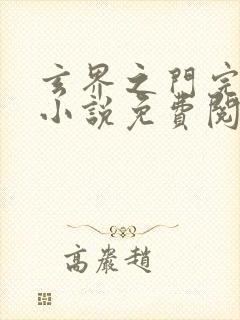 玄界之門完
小說免費閱
高嚴趙